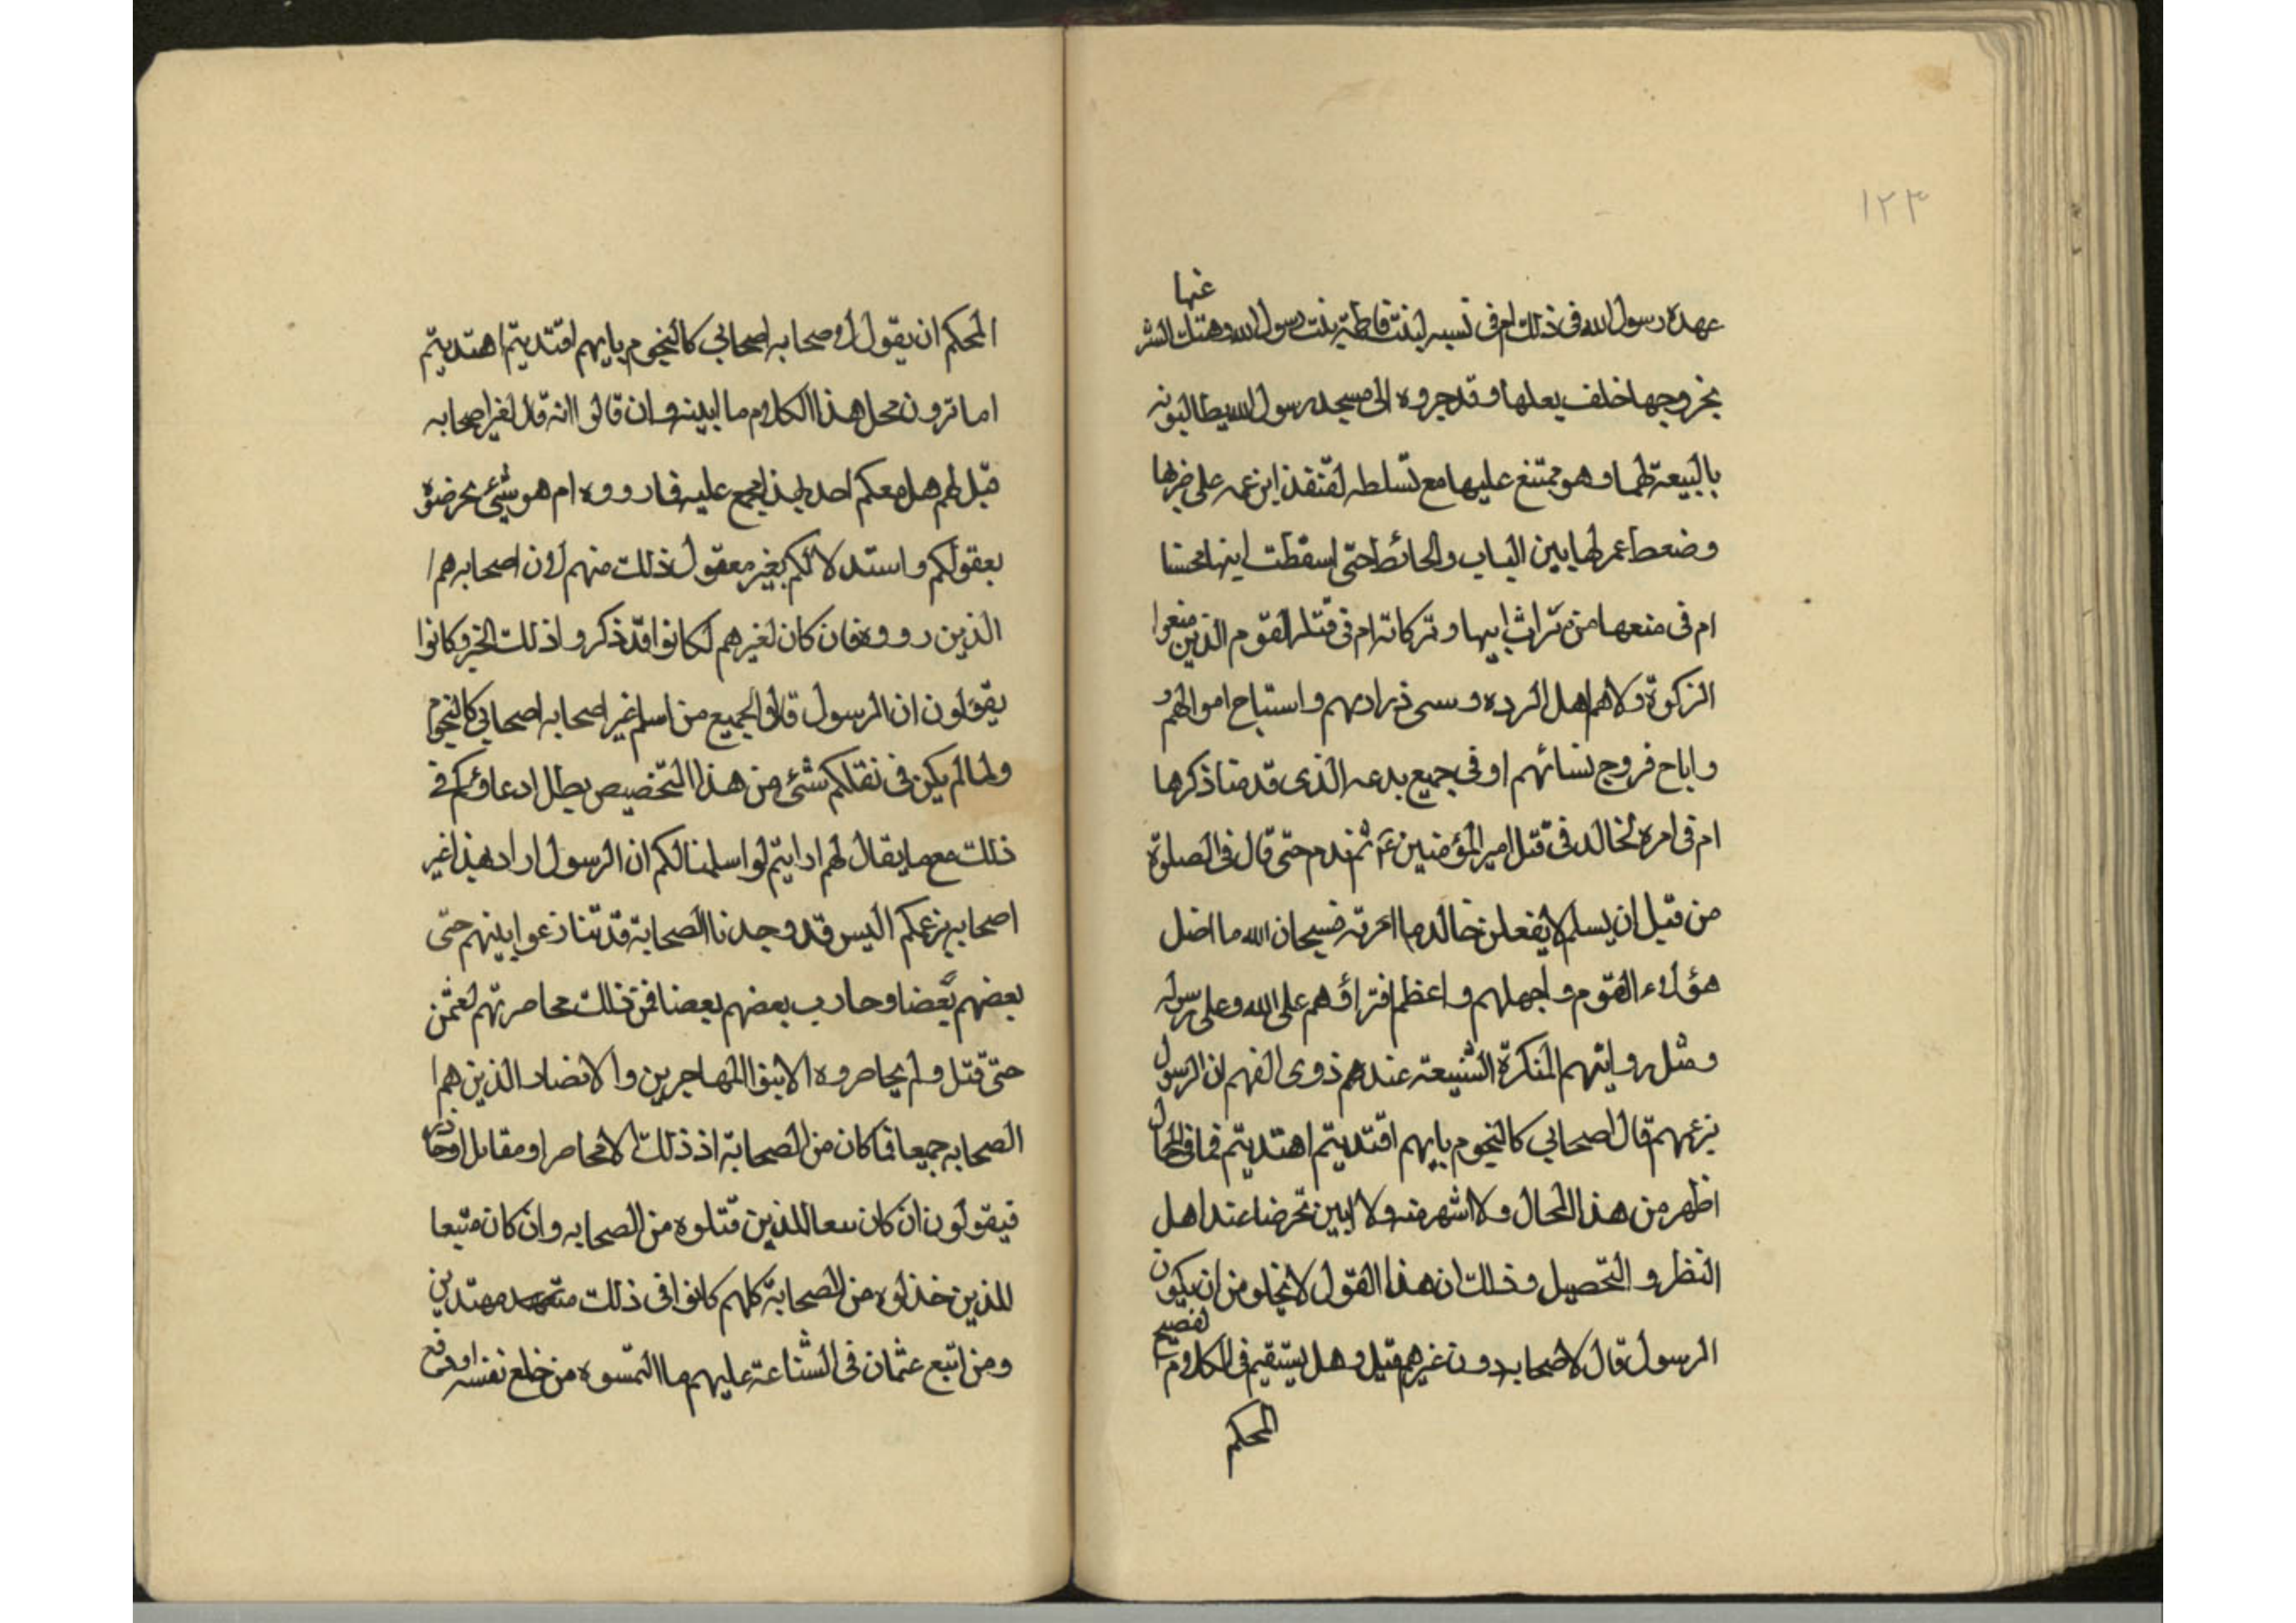 ١٢٣
عنها
عهده رسول الله فى ذلك ام فى تسببه لبنت فاطمة بنت رسول الله وهتك الستر
بخروجها خلف بعلها وقد جروه الى مسجد رسول الله يطالبونه
بالبيعة لهما وهو ممتنع عليهما مع تسلطه لقنفذ ابن عمه على ضربها
وضعط عمر لها بين الباب والحائط حتى اسقطت ابنها محسنا
ام فى منعها من تراث ابيها وتركاته ام فى قتله القوم الذين منعوا
الزكوة ولاهم اهل الرده وسبى ذراريهم واستباح اموالهم
واباح فروج نسائهم او فى جميع بدعه الذى قدمنا ذكرها
ام فى امره لخالد فى قتل امير المؤمنين ع ثم ندم حتى قال فى الصلوة
من قبل ان يسلم لا يفعلن خالد ما امرته فسبحان الله ما اضل
هؤلاء القوم واجهلهم واعظم افتراؤهم على الله وعلى رسوله
ومثل روايتهم المنكرة الشنيعة عندهم ذوى الفهم ان الرسول
بزعمهم قال اصحابي كالنجوم بايهم اقتديتم اهتديتم فما فى المحال
اظهر من هذا المحال ولا اشهر منه ولا ابين تخرضا عند اهل
النظر والتحصيل وذلك ان هذا القول لا يخلو من ان يكون
الرسول قال لاصحابه دون غيرهم قيل وهل يستقيم فى الكلام الفصيح
المحكم
المحكم ان يقول لاصحابه اصحابي كالنجوم بايهم اقتديتم اهتديتم
اما ترون محل هذا الكلام ما ابينه وان قالوا انه قال لغير اصحابه
قيل لهم هل معكم احد بهذا يجمع عليه فارووه ام هو شيئ تخرضتوه
بعقولكم واستدلالكم بغير معقول ذلك منهم لان اصحابه هم
الذين رووه فان كان لغيرهم لكانوا قد ذكروا ذلك الخبر وكانوا
يقولون ان الرسول قال لجميع من اسلم غير اصحابه اصحابي كالنجوم
ولما لم يكن فى نقلكم شئ من هذا التخصيص بطل ادعاؤكم فى
ذلك مع ما يقال لهم ارايتم لو اسلمنا لكم ان الرسول اراد بهذا غير
اصحابه بزعمكم اليس قد وجدنا الصحابة قد تنازعوا بينهم حتى
بعضهم بعضا وحارب بعضهم بعضا فمن ذلك محاصرتهم لعثمن
حتى قتل ولم يحاصروه الا ابنوا المهاجرين والانصار الذين هم
الصحابه جميعا فما كان من الصحابة اذ ذلك الا محاصرا ومقابل او خاذله
فيقولون ان كان سعا للذين قتلوه من الصحابه وان كان متبعا
للذين خذلوه من الصحابة كلهم كانوا فى ذلك مهتدين
ومن اتبع عثمان فى الشناعة عليهم ما التمسوه من خلع نفسه او دفع